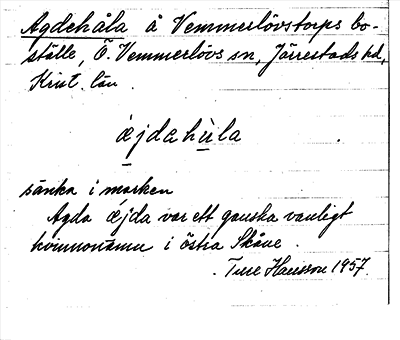 Agdehåla å Vemmerlövstorps bo-
ställe, Ö. Vemmerlövs sn, Järrestads hd,
Krist. län.
ǽjdahùla
sänka i marken
Agda ǽjda var ett ganska vanligt
kvinnonamn i östra Skåne.
Ture Hansson 1957.